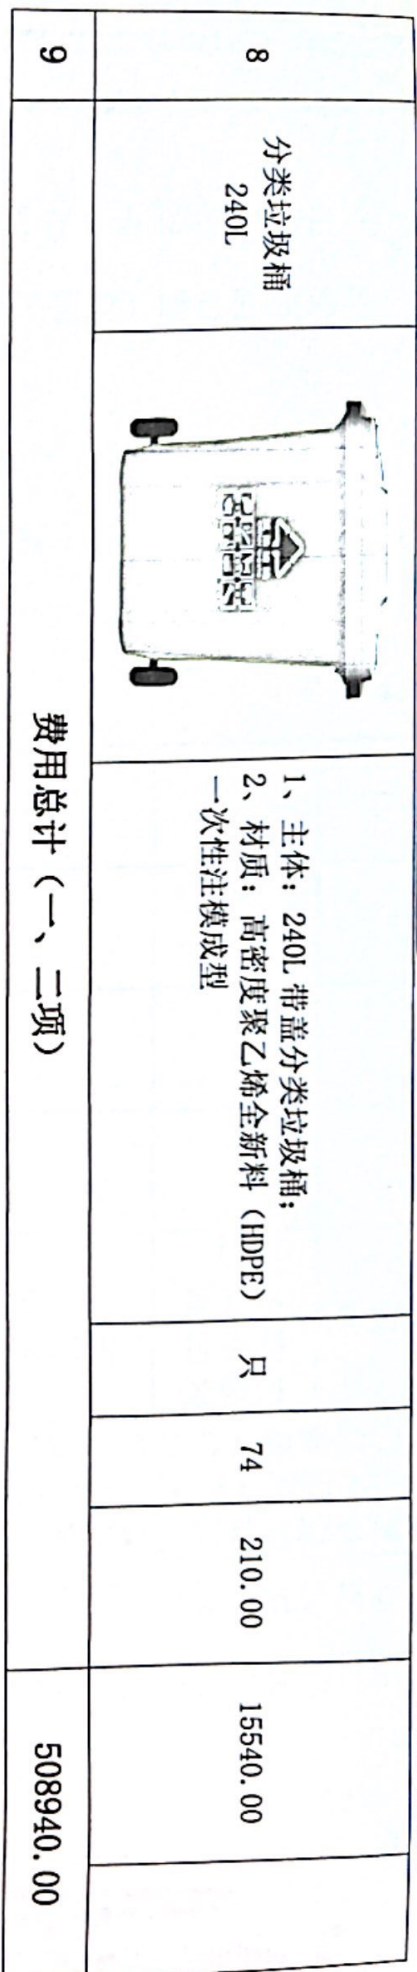 8
分类垃圾桶
240L
1、主体：240L 带盖分类垃圾桶；
2、材质：高密度聚乙烯全新料（HDPE）
一次性注模成型
只
74
210.00
15540.00
9
费用总计（一、二项）
508940.00